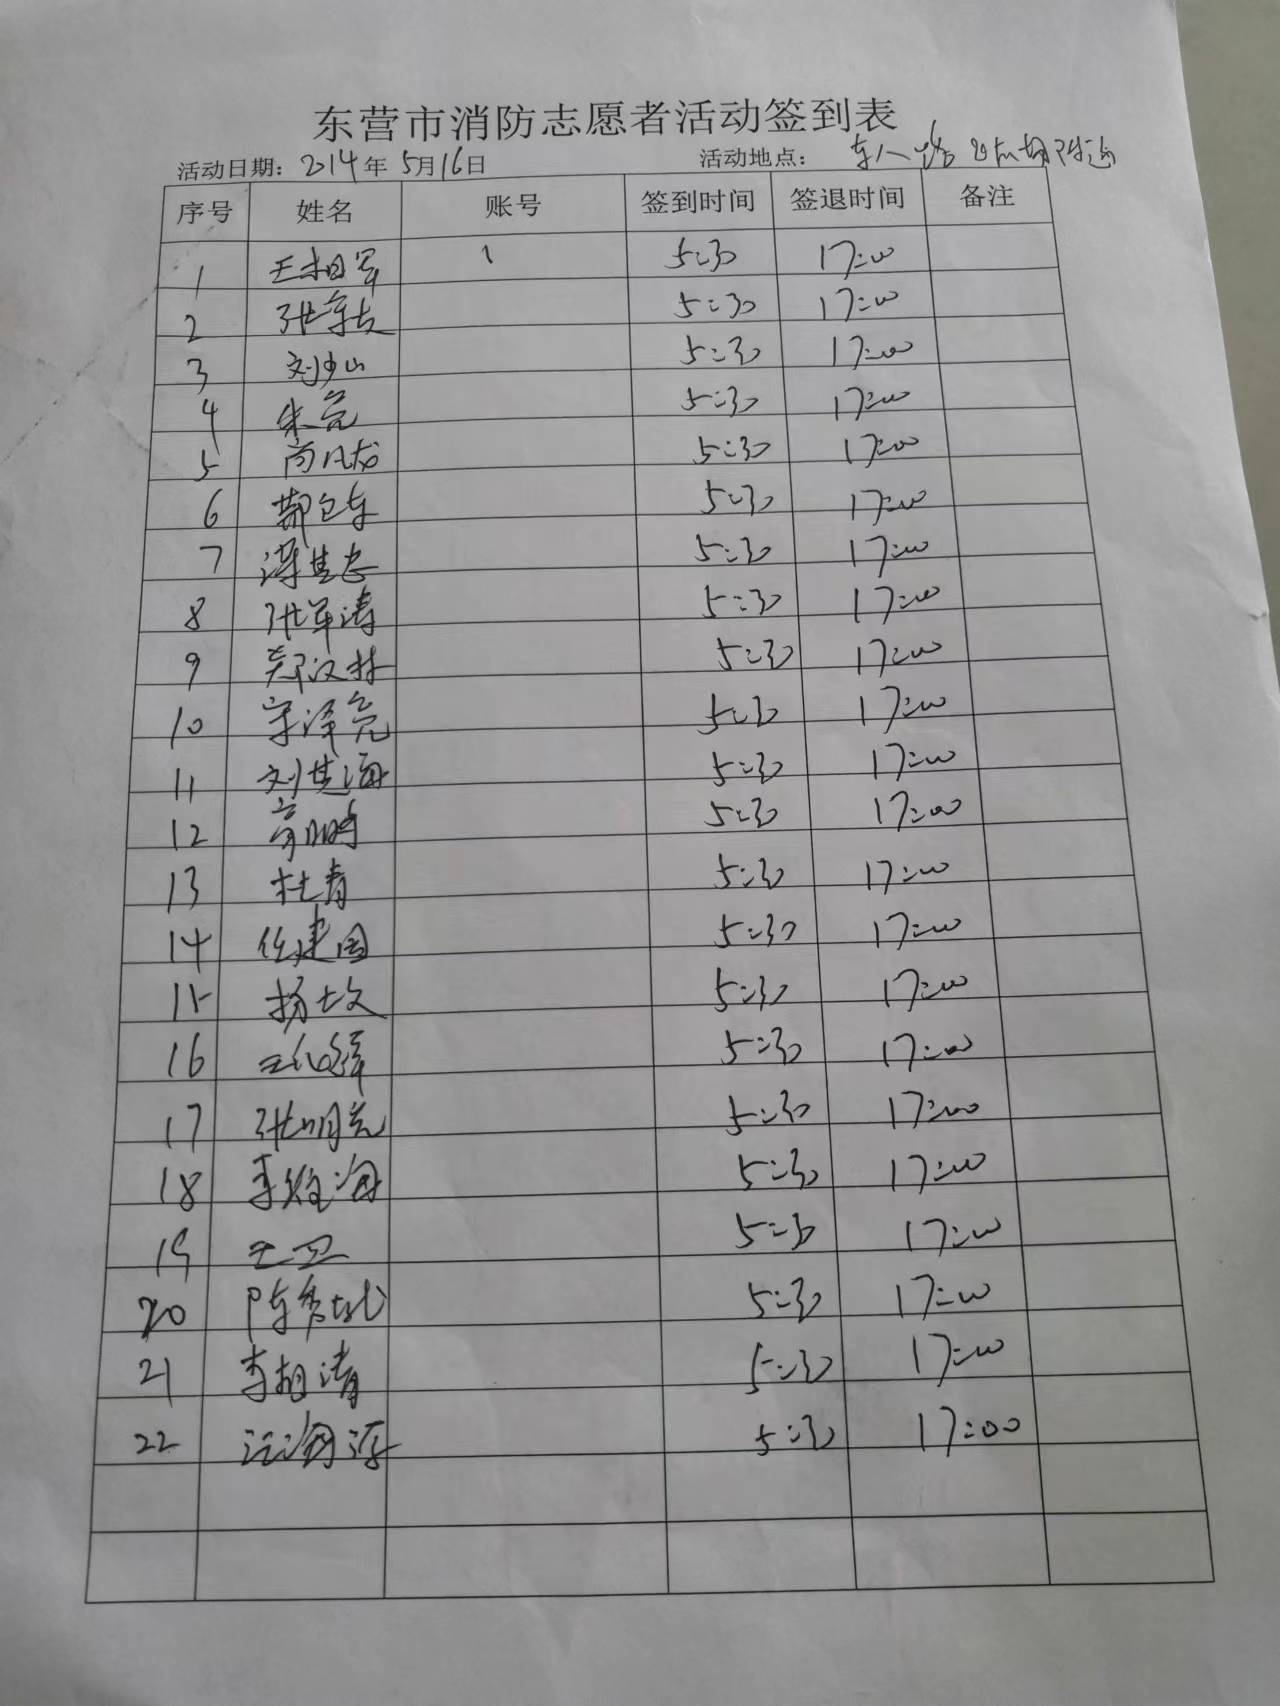 东营市消防志愿者活动签到表
活动日期：2014年5月16日 活动地点：
序号 姓名 账号 签到时间 签退时间 备注
1 王相军 5:30 17:00
2 5:30 17:00
3 刘少山 5:30 17:00
4 朱亮 5:30 17:00
5 尚凡龙 5:30 17:00
6 5:30 17:00
7 5:30 17:00
8 张军涛 5:30 17:00
9 郑汉林 5:30 17:00
10 宋泽亮 5:30 17:00
11 刘其海 5:30 17:00
12 5:30 17:00
13 杜青 5:30 17:00
14 任建国 5:30 17:00
15 5:30 17:00
16 5:30 17:00
17 张明亮 5:30 17:00
18 5:30 17:00
19 王卫 5:30 17:00
20 5:30 17:00
21 李相清 5:30 17:00
22 5:30 17:00